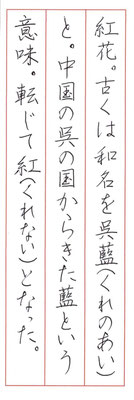 紅花。古くは和名を呉藍(くれのあい)
と。中国の呉の国からきた藍という
意味。転じて紅(くれない)となった。